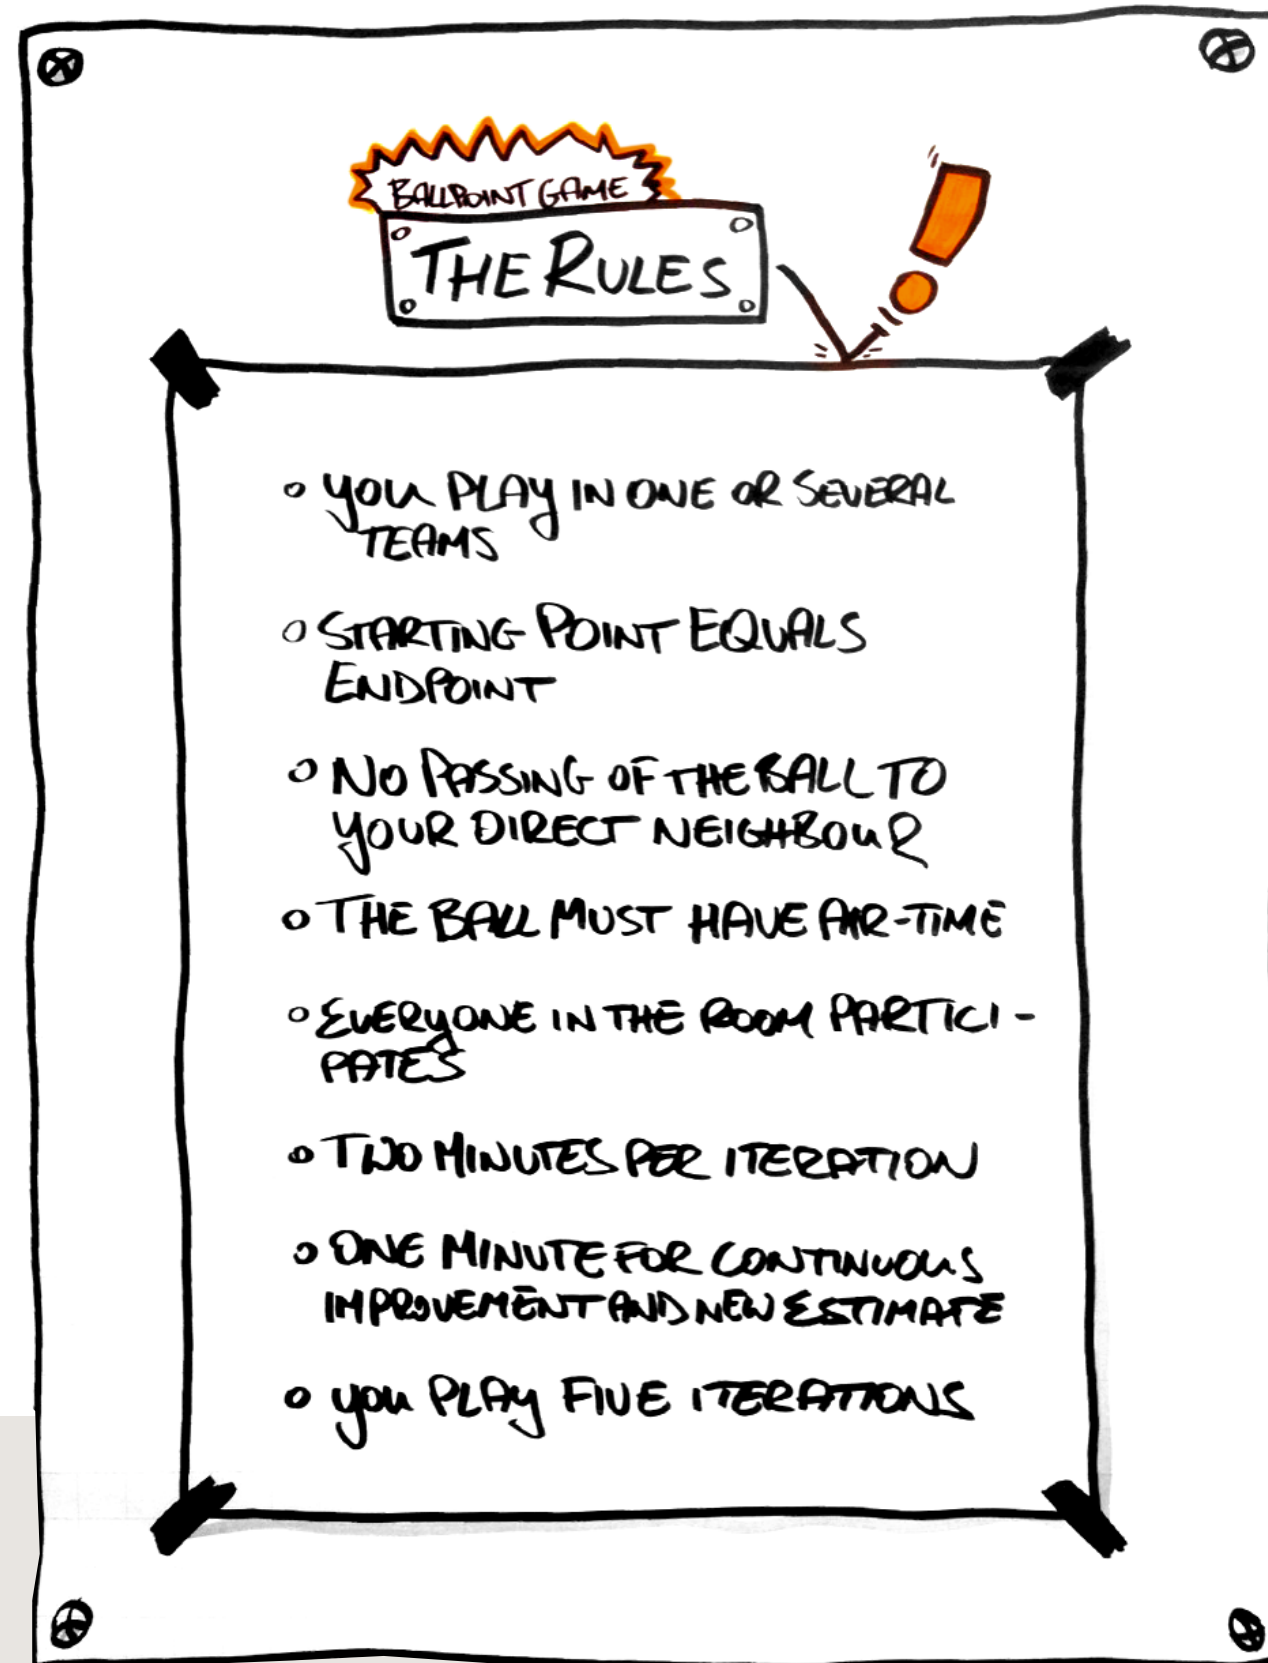 BALLPOINT GAME
THE RULES
o YOU PLAY IN ONE OR SEVERAL
TEAMS
o STARTING POINT EQUALS
ENDPOINT
o NO PASSING OF THE BALL TO
YOUR DIRECT NEIGHBOUR
o THE BALL MUST HAVE AIR-TIME
o EVERYONE IN THE ROOM PARTICI-
PATES
o TWO MINUTES PER ITERATION
o ONE MINUTE FOR CONTINUOUS
IMPROVEMENT AND NEW ESTIMATE
o YOU PLAY FIVE ITERATIONS